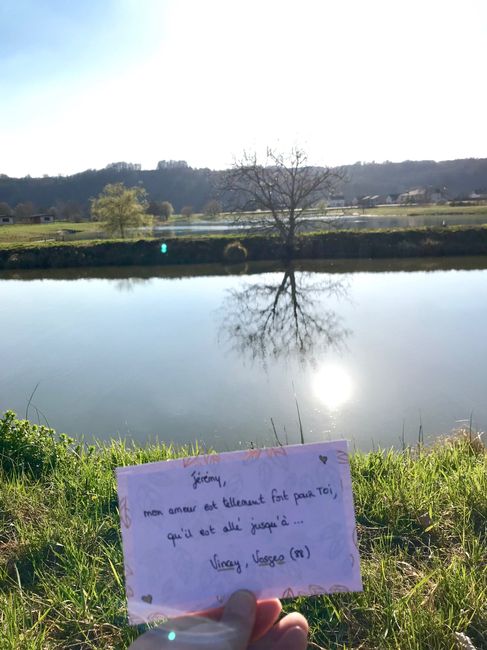 Jérémy,
mon amour est tellement fort pour Toi,
qu'il est allé jusqu'à ...
Vincey, Vosges (88)